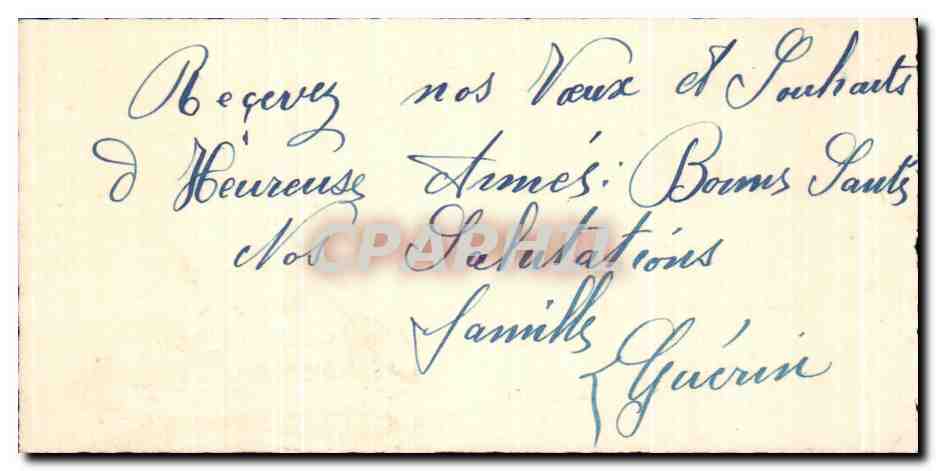 Reçevez nos Vœux et Souhaits
d'Héureuse Année. Bonne Santé
Nos Salutations
famille
Guérin
CPAPHIL